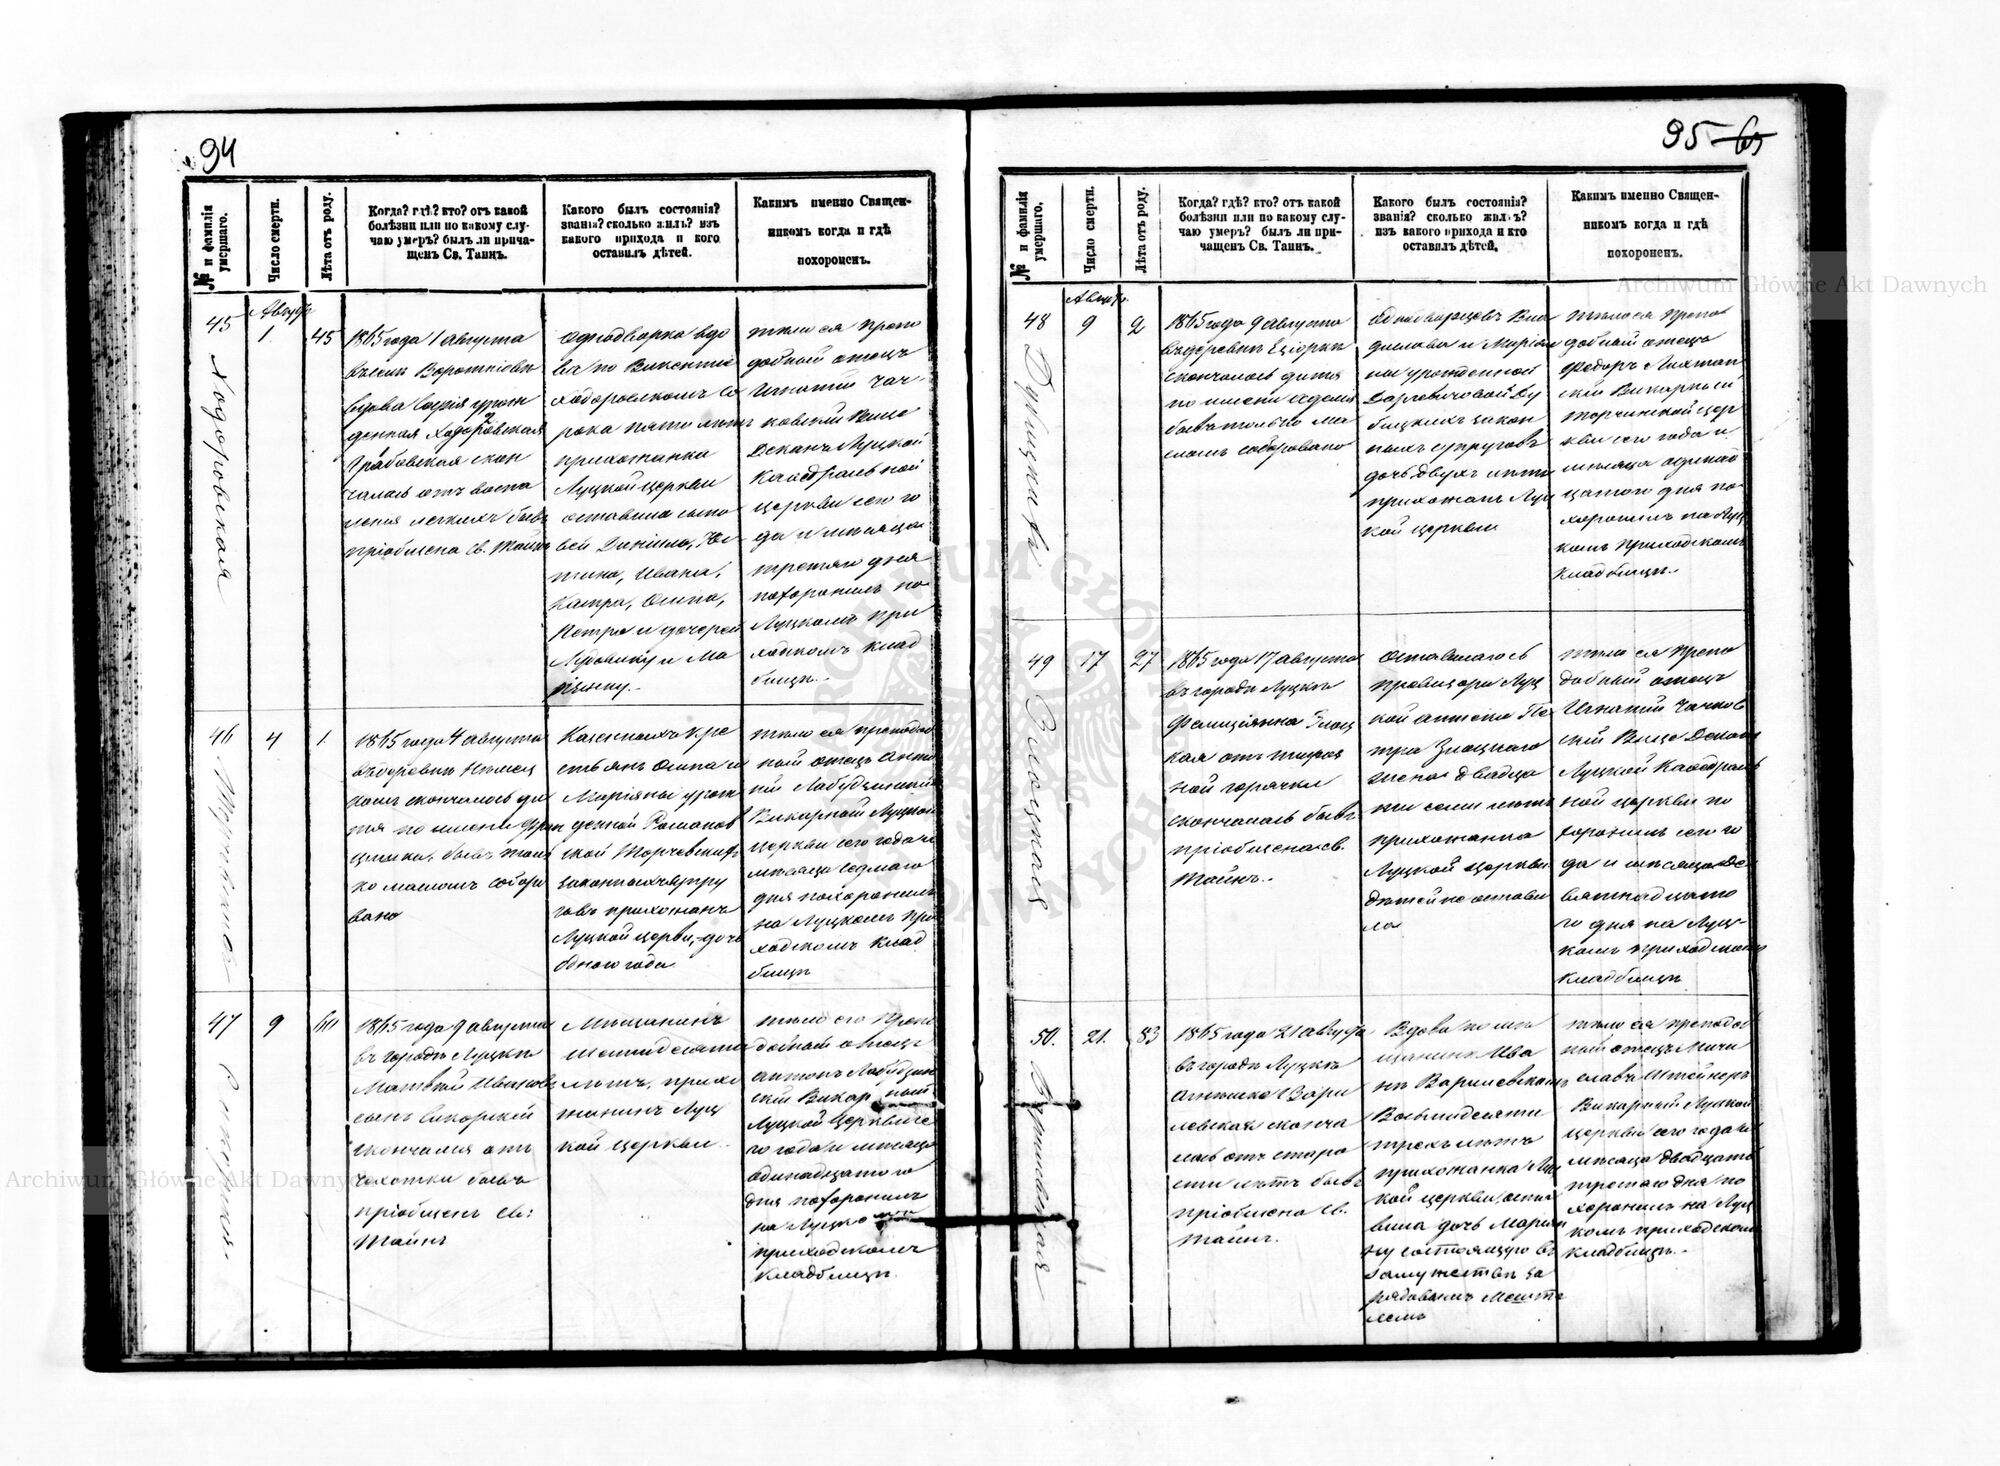 94
№ и фамилія умершаго.
Число смерти.
Лѣта отъ роду.
Когда? гдѣ? кто? отъ какой
болѣзни или по какому слу-
чаю умеръ? былъ ли прича-
щенъ Св. Таинъ.
Какого былъ состоянія?
званія? сколько жилъ? изъ
какого прихода и кого
оставилъ дѣтей.
Какимъ именно Священ-
никомъ когда и гдѣ
похороненъ.
45
Ходоровская
Августъ
1.
45
1865 года 1 августа
вдова Софія урож
денная Ходоровская
Грабовская скон
чалась отъ воспа
ленія легкихъ бывъ
пріобщена Св. Тайнъ
однодворка вдо
ва по Викентіѣ
Ходоровскомъ со
рока пяти лѣтъ
прихожанка
Луцкой церкви
оставила сыно
вей Даніила, Ю
стина, Ивана,
Осипа,
Петра и дочерей
Людовику и Ма
ріянну.
тѣло ея препо
добный отецъ
Игнатій Чач-
ковскій Вице
Деканъ Луцкой
Каѳедральной
церкви сего го
да и мѣсяца
третяго дня
похоронилъ на
Луцкомъ при
ходскомъ клад
бищѣ.
46
4
1.
1865 года 4 августа
въ деревнѣ
скончалось ди
тя по имени Фран
цишка, бывъ толь
ко масломъ собори
вано
Казенныхъ кре
стьянъ Осипа и
Маріяны урож
денной Романов
ской
законныхъ супру
говъ прихожанъ
Луцкой церкви, дочь
одного года
тѣло ея преподоб
ный отецъ Анто
ній
Викарный Луцкой
церкви сего года и
мѣсяца седмаго
дня похоронилъ
на Луцкомъ при
ходскомъ клад
бищѣ
47
9
60
1865 года 9 августа
въ городѣ Луцкѣ
Матвѣй Ивановъ
сынъ Сикорскій
скончался отъ
чахотки бывъ
пріобщенъ Св:
Тайнъ
Мѣщанинъ
шестидесяти
лѣтъ, прихо
жанинъ Луц
кой церкви.
тѣло его препо
добный отецъ
Антонъ
скій Викарный
Луцкой церкви се
го года и мѣсяца
одинадцатого
дня похоронилъ
на Луцкомъ
приходскомъ
кладбищѣ.
95
№ и фамилія умершаго.
Число смерти.
Лѣта отъ роду.
Когда? гдѣ? кто? отъ какой
болѣзни или по какому слу-
чаю умеръ? былъ ли при-
чащенъ Св. Таинъ.
Какого былъ состоянія?
званія? сколько жилъ?
изъ какого прихода и кто
оставилъ дѣтей.
Какимъ именно Священ-
никомъ когда и гдѣ
похороненъ.
48
Августъ
9
2
1865 года 9 августа
въ деревнѣ
скончалось дитя
по имени
бывъ только ма
сломъ соборовано
однодворцевъ Вла
дислава и Маріян
ны урожденной
законныхъ супруговъ
дочь двухъ лѣтъ
прихожанъ Луц
кой церкви
тѣло ея препо
добный отецъ
Федоръ
скій Викарный
Торчинской цер
кви сего года и
мѣсяца одинад
цатого дня по
хоронилъ на Луц
комъ приходскомъ
кладбищѣ.
49
17
27
1865 года 17 августа
въ городѣ Луцкѣ
Фелиціянна
кая отъ
ной горячки
скончалась бывъ
пріобщена св.
Тайнъ.
провизора Луц
кой аптеки Пе
тра
жена двадца
ти семи лѣтъ
прихожанка
Луцкой церкви
дѣтей не остави
ла
тѣло ея препо
добный отецъ
Игнатій Чачков
скій Вице Деканъ
Луцкой Каѳедраль
ной церкви по
хоронилъ сего го
да и мѣсяца де
вятнадцато
го дня на Луц-
комъ приходскомъ
кладбищѣ
50.
21.
83
1865 года 21 августа
въ городѣ Луцкѣ
скончa
лась отъ старо
сти лѣтъ бывъ
пріобщена Св.
Тайнъ.
Вдова по мѣ
щанинѣ Ива
нѣ
Восьмидесяти
трехъ лѣтъ
прихожанка Луц
кой церкви, оста
вила дочь Маріян
ну состоящую въ
замужествѣ за
рядовымъ
тѣло ея преподоб
ный отецъ Мечи
славъ
Викарный Луцкой
церкви сего года и
мѣсяца двадцать
третяго дня по
хоронилъ на Луц
комъ приходскомъ
кладбищѣ.
Archiwum Główne Akt Dawnych
Archiwum Główne Akt Dawnych